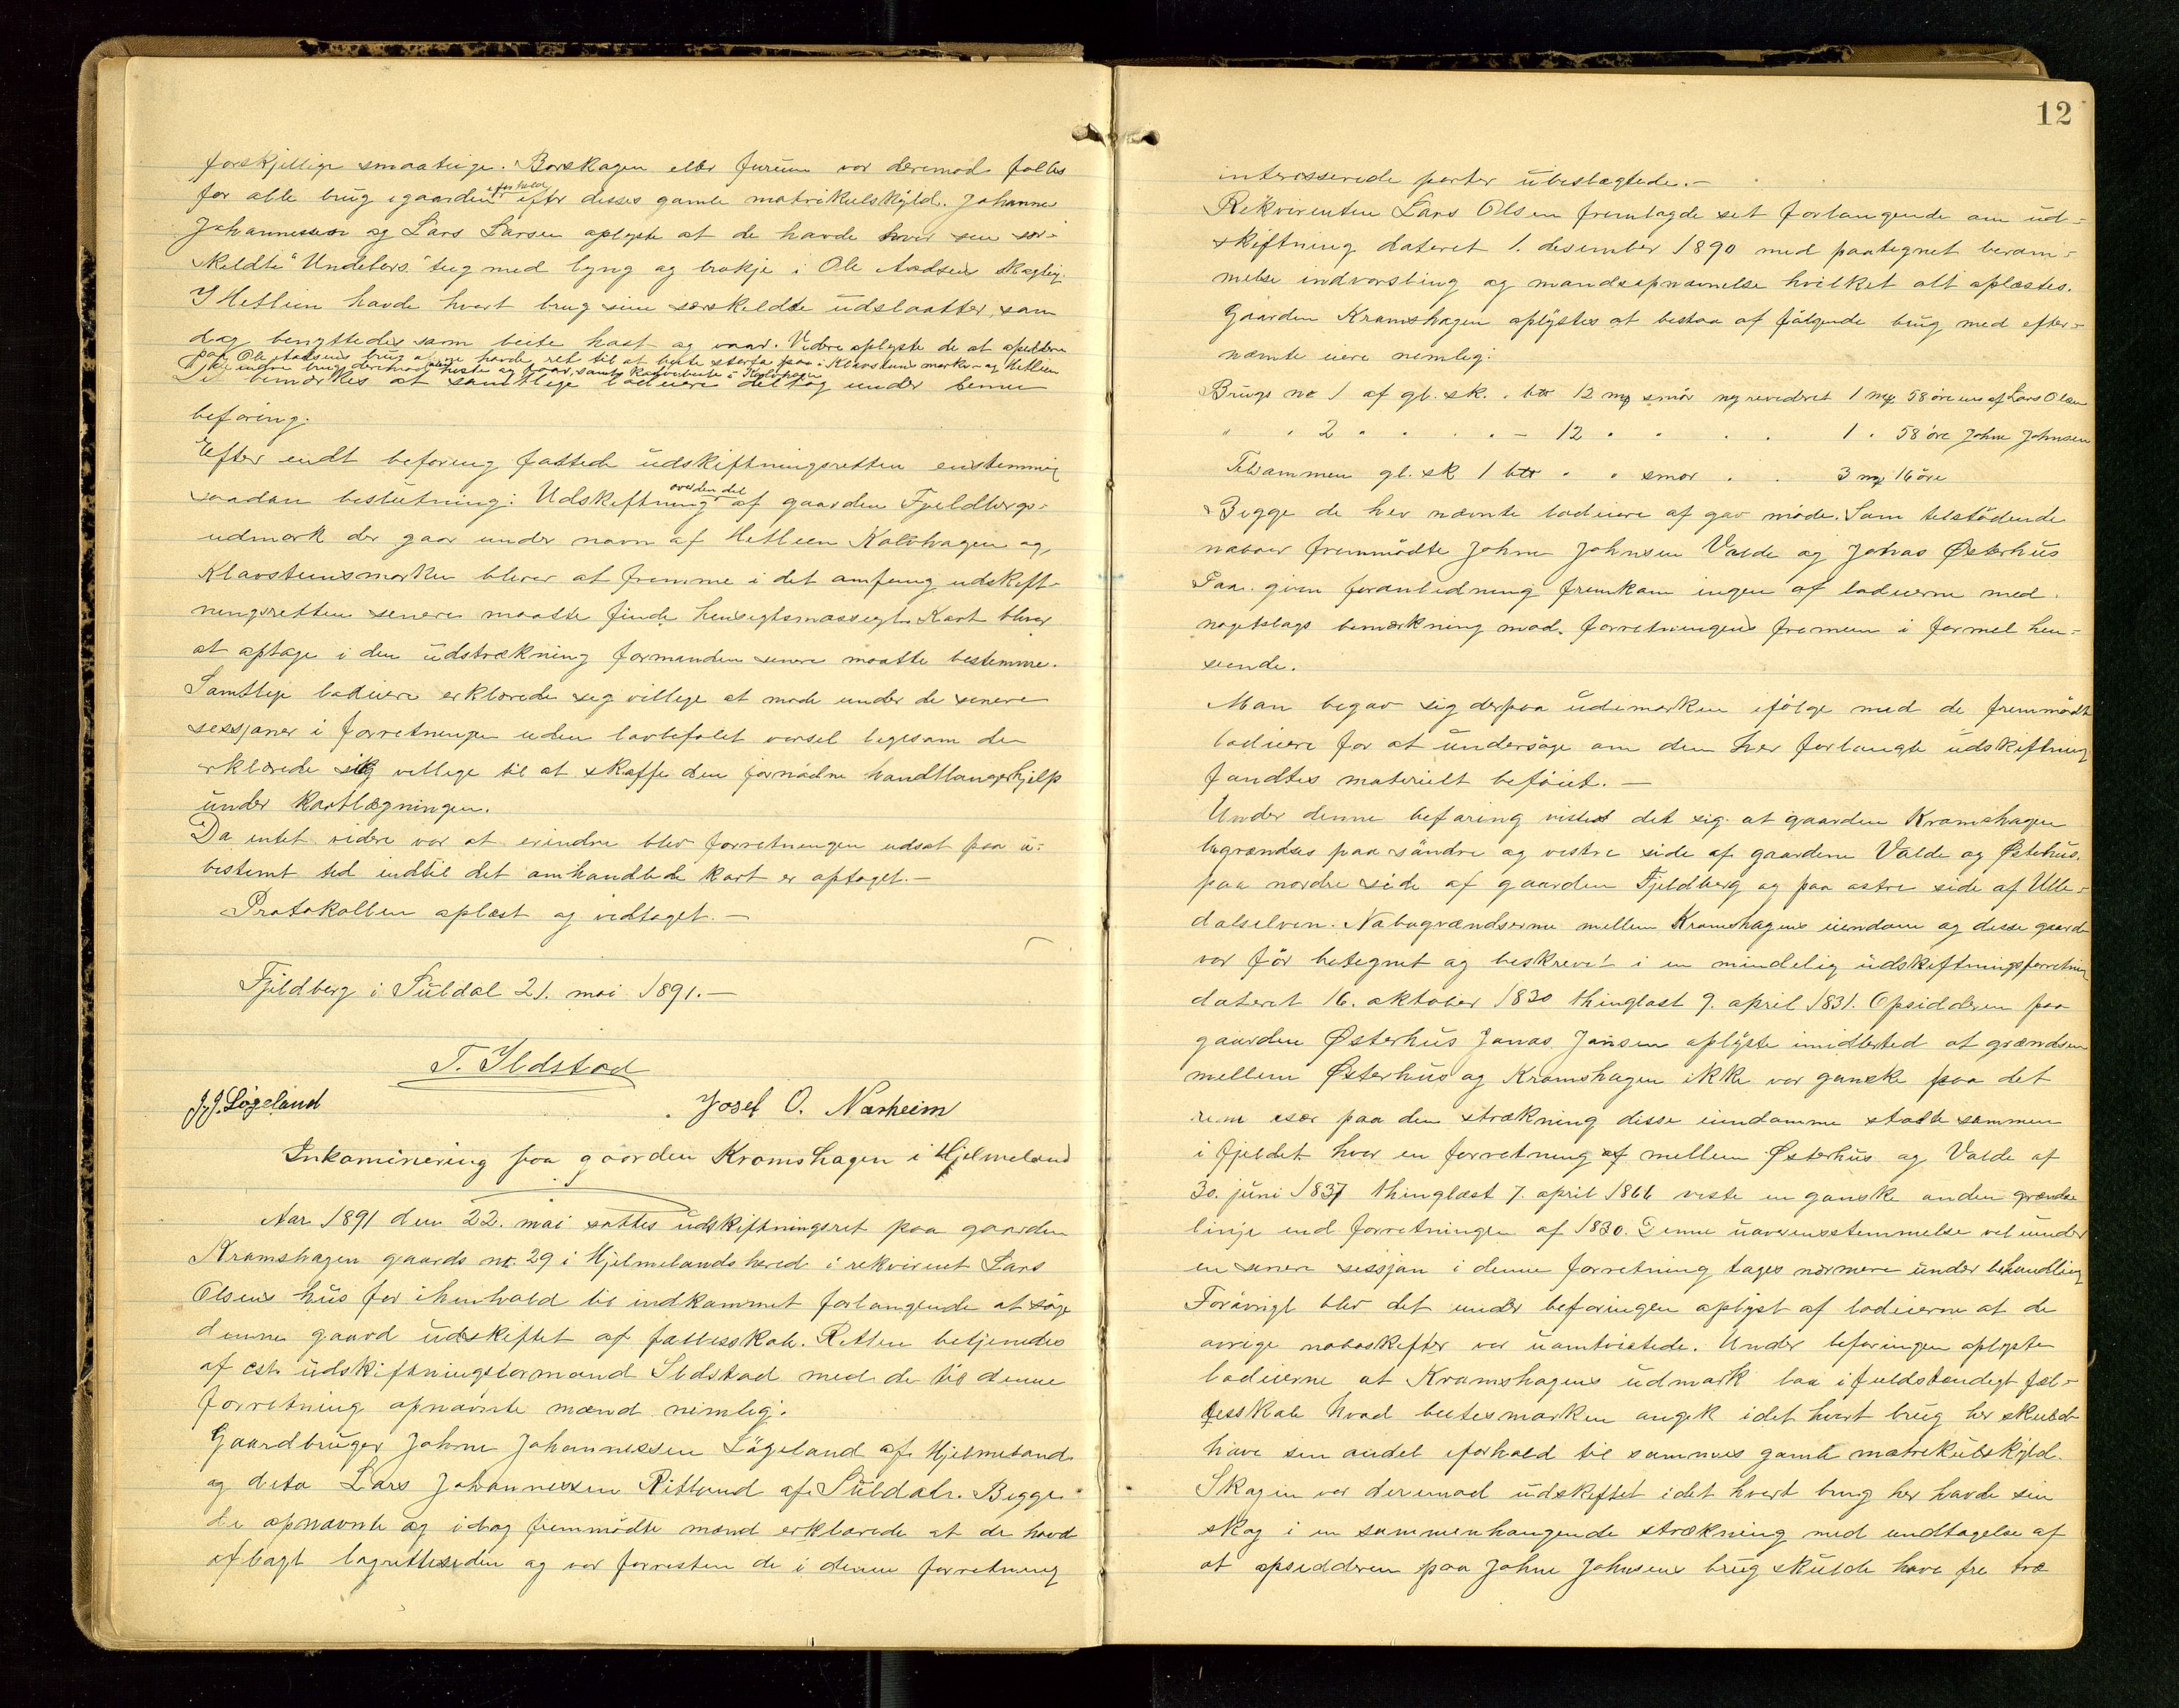 forskjellige smaateige. Barskagen eller furuen var deremod fælles
for alle brug i gaarden i forhold efter disses gamle matrikulskyld. Johannes
Johannessen og Lars Larsen oplyste at de havde hver sin sær-
skeldte "Undeliers" teig med lyng og brakje i Ole Aadsens skogteig.
I Hetleien havde hvert brug sine særskeldte udslaatter, som
dog benyttedes som beite høst og vaar. Videre oplyste de at opsidderen
paa Ole Aadsens brug alene havde ret til at beite storfæ paa i Klavsteinsmarka og Hetleien
De bemærkes at samtlige lodeiere deltog under denne
befaring.
Efter endt befaring fattede udskiftningsretten enstemmig
saadan beslutning: Udskiftning over den del af gaarden Fjeldbergs
udmark der gaar under navn af Hetleien Kalvhagen og
Klavsteinsmarken bliver at fremme i det omfang udskift-
ningsretten senere maatte finde hensigtsmæssigt. Kart bliver
at optage i den udstrækning formanden senere maatte bestemme.
Samtlige lodeiere erklærede sig villige at møde under de senere
sessjoner i forretningen uden lovbefalet varsel ligesom de
erklærede sig villige til at skaffe den fornødne handtlangerhjelp
under kartlægningen.
Da intet videre var at erindre blev forretningen udsat paa u-
bestemt tid indtil det omhandlede kart er optaget.-
Protokollen oplæst og vedtaget.-
Fjeldberg i Suldal 21. mai 1891.-
T. Ildstad
J. J. Løgeland Josef O. Nærheim
Inkaminering paa gaarden Kromshagen i Hjelmeland
Aar 1891 den 22. mai sattes udskiftningsret paa gaarden
Kramshagen gaards no. 29 i Hjelmelands herred i rekvirent Lars
Olsens hus for i henhold til indkommet forlangende at søge
denne gaard udskiftet af fællesskab. Retten betjenedes
af cst. udskiftningsformand Ildstad med de til denne
forretning opnævnte mænd nemlig:
Gaardbruger Johne Johannessen Løgeland af Hjelmeland
og dito Lars Johannessen Ritland af Suldal. Begge
de opnævnte og idag fremmødte mænd erklærede at de havde
aflagt lagretteseden og var forresten de i denne forretning
12
interesserede parter ubeslægtede.-
Rekvirenten Lars Olsen fremlagde sit forlangende om ud-
skiftning dateret 1. desember 1890 med paategnet beram-
melse indvarsling og mandsopnævnelse hvilket alt oplæstes.
Gaarden Kramshagen oplystes at bestaa af følgende brug med efter-
nævnte eiere nemlig:
Brugs no 1 af gl. sk. . btr 12 mp smør ny revideret 1 mp. 58 øre eies af Lars Olsen
" " 2 " " " " - 12 " " " " 1 " 58 øre Johne Johnsen
Tilsammen gl. sk 1 btr " " smør . . 3 mp 16 øre
Begge de her nævnte lodeiere af gav møde. Som tilstødende
naboer fremmødte Johne Johnsen Valde og Jonas Østerhus
Paa given foranledning fremkom ingen af lodeierne med
nogetslags bemærkning mod forretningens fremme i formel hen-
seende.
Man begav sig derpaa udimarken ifølge med de fremmødte
lodeiere for at undersøge om den her forlangte udskiftning
fandtes materielt beføiet.-
Under denne befaring vistes det sig at gaarden Kramshagen
begrændses paa søndre og vestre side af gaardene Valde og Østehus.
paa nordre side af gaarden Fjeldberg og paa østre side af Ulle-
dalselven. Nabogrændserne mellem Kramshagens eiendom og disse gaarde
var før betegnet og beskrevet i en mindelig udskiftningsforretning
dateret 16. oktober 1830 thinglæst 9. april 1831. Opsidderen paa
gaarden Østerhus Jonas Jansen oplyste imidlertid at grændsen
mellem Østerhus og Kramshagen ikke var ganske paa det
rene især paa den strækning disse eiendomme stødte sammen
i fjeldet hvor en forretning af mellem Østerhus og Valde af
30. juni 1837 thinglæst 7. april 1866 viste en ganske anden grændse
linje end forretningen af 1830. Denne uoverensstemmelse vil under
en senere sessjon i denne forretning tages nærmere under behandling
Forøvrigt blev det under befaringen oplyst af lodeierne at de
øvrige naboskifter var uomtvistede. Under befaringen oplyste
lodeierne at Kramshagens udmark laa i fuldstændigt fæl-
lesskab hvad beitesmarken angik idet hvert brug her skulde
have sin andel i forhold til sammes gamle matrikulskyld.
Skogen var derimod udskiftet idet hvert brug her havde sin
skog i en sammenhængende strækning med undtagelse af
at opsidderen paa Johne Johnsens brug skulde have fre træ